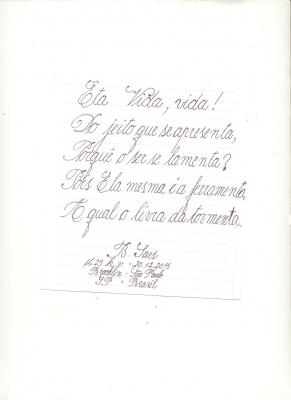 Eta Vida, vida!
Do jeito que se apresenta,
Porquê o ser se lamenta?
Pois Ela mesma é a ferramenta,
A qual o livra da tormenta.
B. Saes
20.12.2015
Brooklin - São Paulo
SP - Brasil